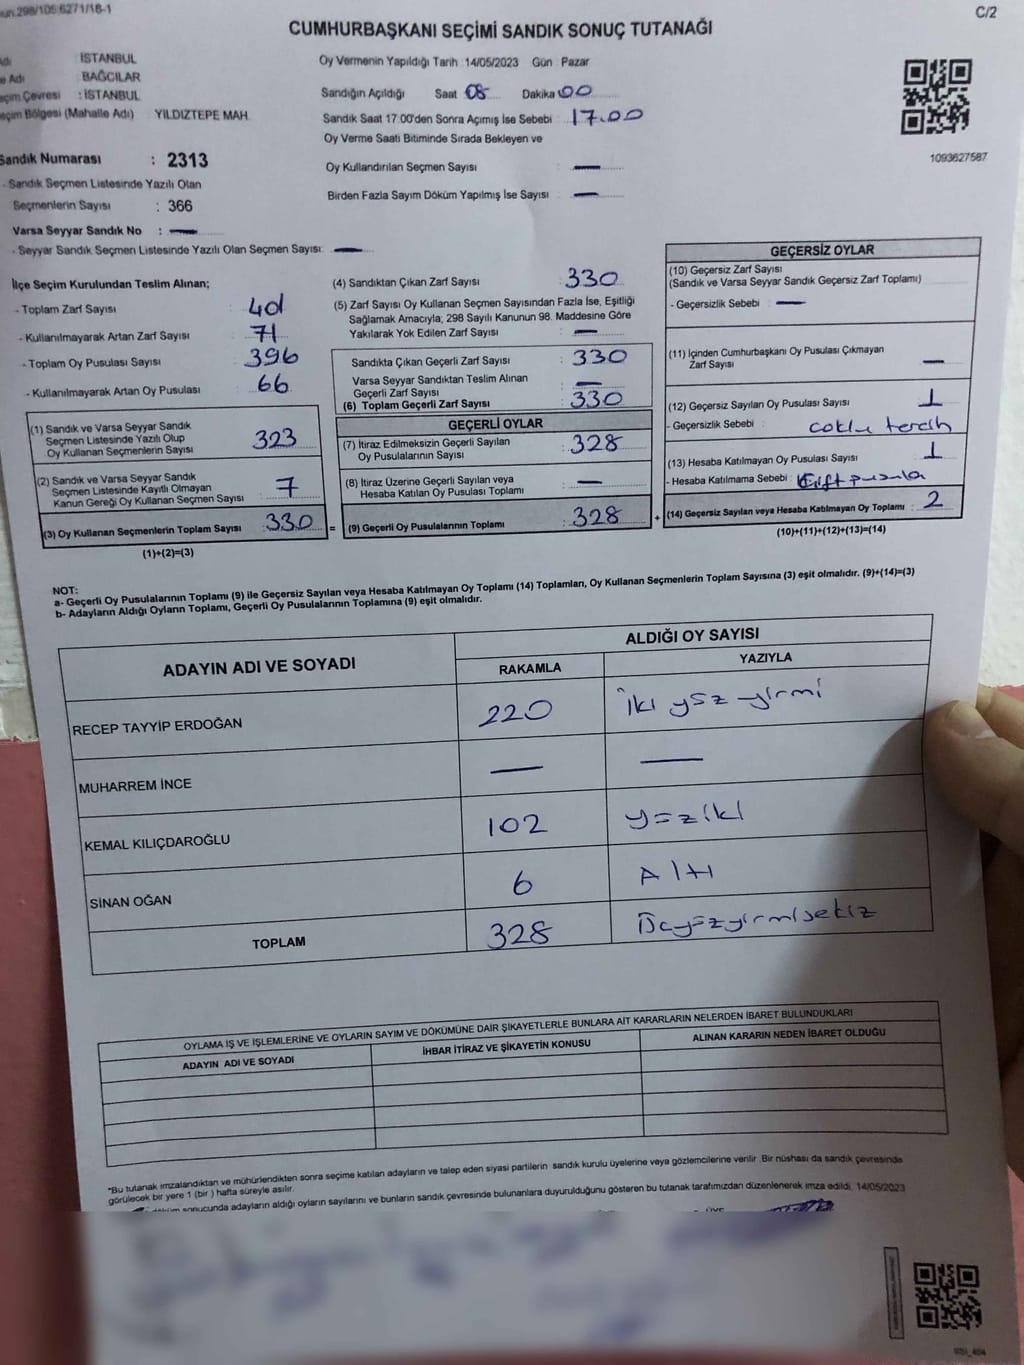 C/2
CUMHURBAŞKANI SEÇİMİ SANDIK SONUÇ TUTANAĞI
İSTANBUL
Adı : BAĞCILAR
Seçim Çevresi : İSTANBUL
Seçim Bölgesi (Mahalle Adı) YILDIZTEPE MAH.
Sandık Numarası : 2313
- Sandık Seçmen Listesinde Yazılı Olan
Seçmenlerin Sayısı : 366
Varsa Seyyar Sandık No : —
- Seyyar Sandık Seçmen Listesinde Yazılı Olan Seçmen Sayısı: —
Oy Vermenin Yapıldığı Tarih : 14/05/2023 Gün : Pazar
Sandığın Açıldığı Saat 08 Dakika 00
Sandık Saat 17.00'den Sonra Açımış İse Sebebi : 17.00
Oy Verme Saati Bitiminde Sırada Bekleyen ve
Oy Kullandırılan Seçmen Sayısı : —
Birden Fazla Sayım Döküm Yapılmış İse Sayısı : —
1093627587
İlçe Seçim Kurulundan Teslim Alınan;
- Toplam Zarf Sayısı : 401
- Kullanılmayarak Artan Zarf Sayısı : 71
- Toplam Oy Pusulası Sayısı : 396
- Kullanılmayarak Artan Oy Pusulası : 66
(1) Sandık ve Varsa Seyyar Sandık
Seçmen Listesinde Yazılı Olup
Oy Kullanan Seçmenlerin Sayısı : 323
(2) Sandık ve Varsa Seyyar Sandık
Seçmen Listesinde Kayıtlı Olmayan
Kanun Gereği Oy Kullanan Seçmen Sayısı : 7
(3) Oy Kullanan Seçmenlerin Toplam Sayısı : 330 =
(1)+(2)=(3)
(4) Sandıktan Çıkan Zarf Sayısı : 330
(5) Zarf Sayısı Oy Kullanan Seçmen Sayısından Fazla İse, Eşitliği
Sağlamak Amacıyla; 298 Sayılı Kanunun 98. Maddesine Göre
Yakılarak Yok Edilen Zarf Sayısı : —
Sandıkta Çıkan Geçerli Zarf Sayısı : 330
Varsa Seyyar Sandıktan Teslim Alınan
Geçerli Zarf Sayısı : —
(6) Toplam Geçerli Zarf Sayısı : 330
GEÇERLİ OYLAR
(7) İtiraz Edilmeksizin Geçerli Sayılan
Oy Pusulalarının Sayısı : 328
(8) İtiraz Üzerine Geçerli Sayılan veya
Hesaba Katılan Oy Pusulası Toplamı : —
(9) Geçerli Oy Pusulalarının Toplamı : 328 +
GEÇERSİZ OYLAR
(10) Geçersiz Zarf Sayısı
(Sandık ve Varsa Seyyar Sandık Geçersiz Zarf Toplamı)
- Geçersizlik Sebebi : —
(11) İçinden Cumhurbaşkanı Oy Pusulası Çıkmayan
Zarf Sayısı : —
(12) Geçersiz Sayılan Oy Pusulası Sayısı : 1
- Geçersizlik Sebebi : coklu tercih
(13) Hesaba Katılmayan Oy Pusulası Sayısı : 1
- Hesaba Katılmama Sebebi : Çift pusula
(14) Geçersiz Sayılan veya Hesaba Katılmayan Oy Toplamı : 2
(10)+(11)+(12)+(13)=(14)
NOT:
a- Geçerli Oy Pusulalarının Toplamı (9) ile Geçersiz Sayılan veya Hesaba Katılmayan Oy Toplamı (14) Toplamları, Oy Kullanan Seçmenlerin Toplam Sayısına (3) eşit olmalıdır. (9)+(14)=(3)
b- Adayların Aldığı Oyların Toplamı, Geçerli Oy Pusulalarının Toplamına (9) eşit olmalıdır.
ADAYIN ADI VE SOYADI ALDIĞI OY SAYISI
RAKAMLA YAZIYLA
RECEP TAYYİP ERDOĞAN 220 iki yüz yirmi
MUHARREM İNCE — —
KEMAL KILIÇDAROĞLU 102 yüziki
SİNAN OĞAN 6 Altı
TOPLAM 328 Üçyüzyirmisekiz
OYLAMA İŞ VE İŞLEMLERİNE VE OYLARIN SAYIM VE DÖKÜMÜNE DAİR ŞİKAYETLERLE BUNLARA AİT KARARLARIN NELERDEN İBARET BULUNDUKLARI
ADAYIN ADI VE SOYADI İHBAR İTİRAZ VE ŞİKAYETİN KONUSU ALINAN KARARIN NEDEN İBARET OLDUĞU
*Bu tutanak imzalandıktan ve mühürlendikten sonra seçime katılan adayların ve talep eden siyasi partilerin sandık kurulu üyelerine veya gözlemcilerine verilir. Bir nüshası da sandık çevresinde
görülecek bir yere 1 (bir ) hafta süreyle asılır.
döküm sonucunda adayların aldığı oyların sayılarını ve bunların sandık çevresinde bulunanlara duyurulduğunu gösteren bu tutanak tarafımızdan düzenlenerek imza edildi. 14/05/2023
ÜYE